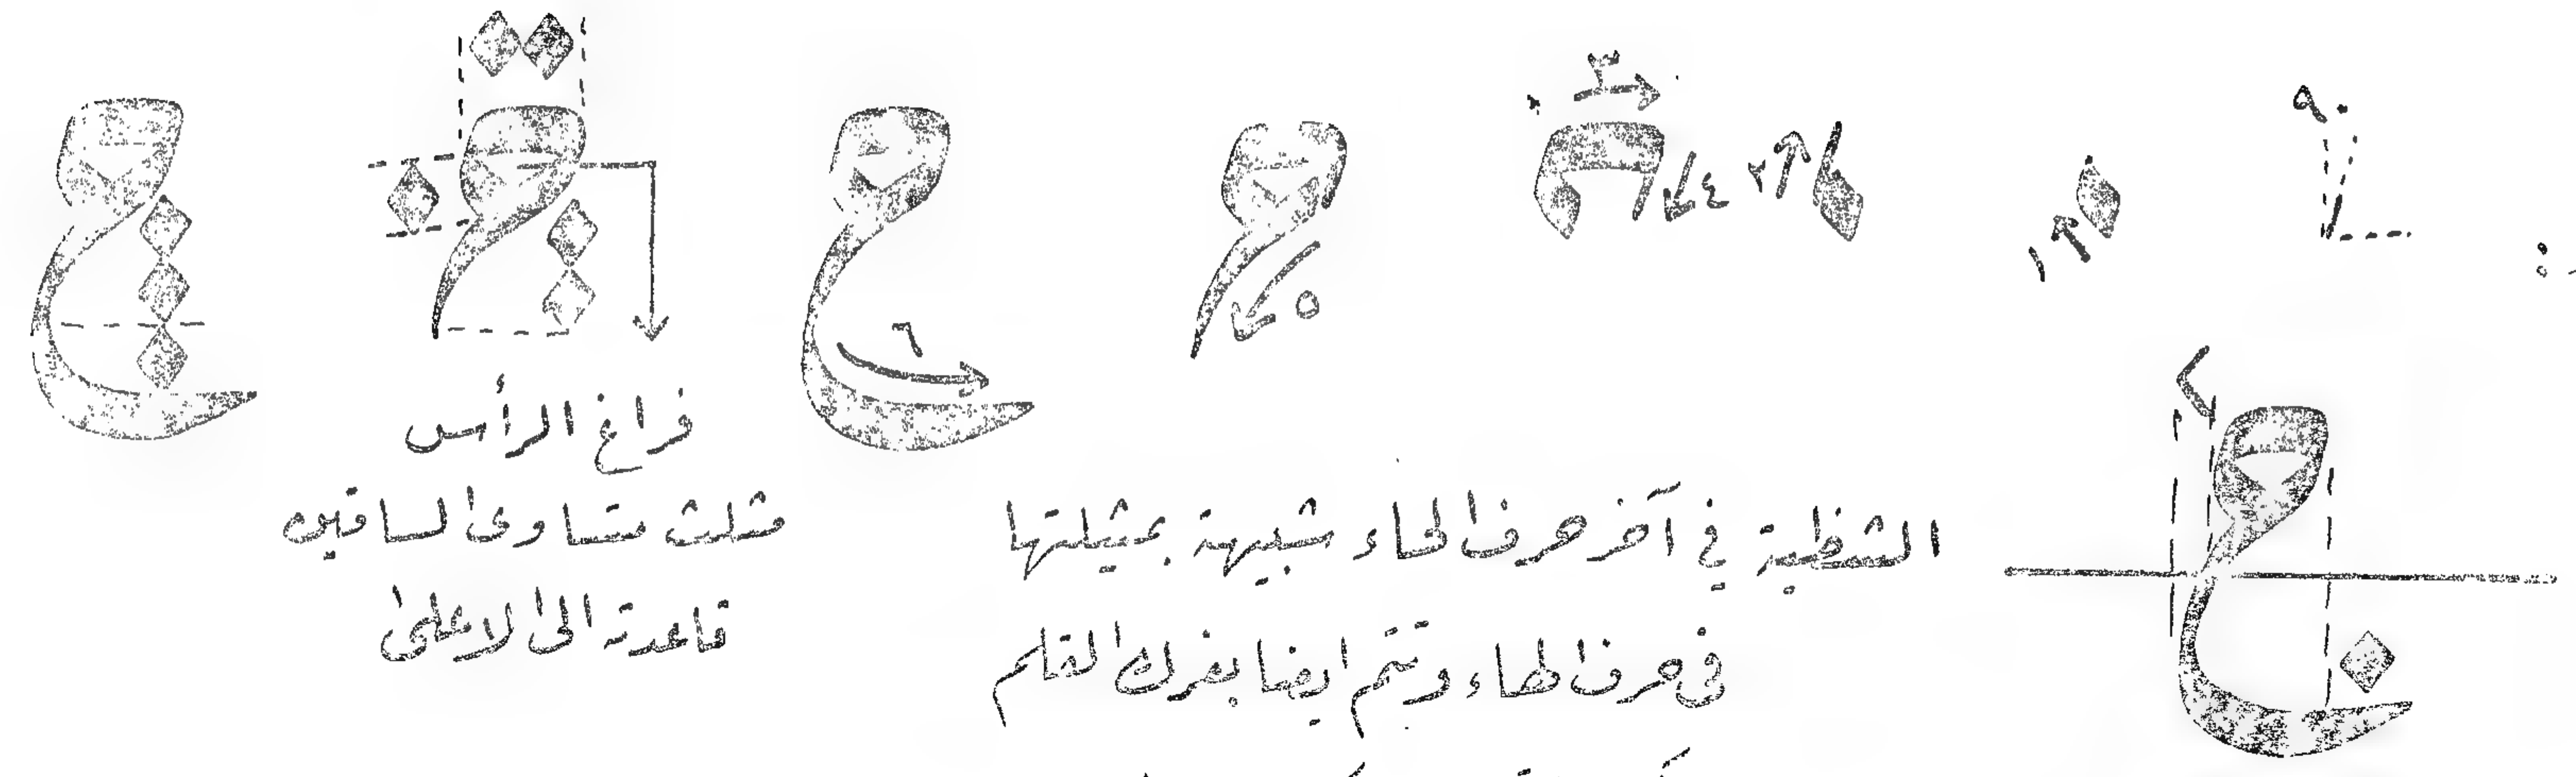 ٩٠
١
٢
٣
٤
٥
٦
فراغ الرأس
مثلث متساوى الساقين
قاعدته الى الاعلى
الشظية في آخر حرف الحاء شبيهة بمثيلتها
فى حرف الهاء وتتم ايضا بفرك القلم